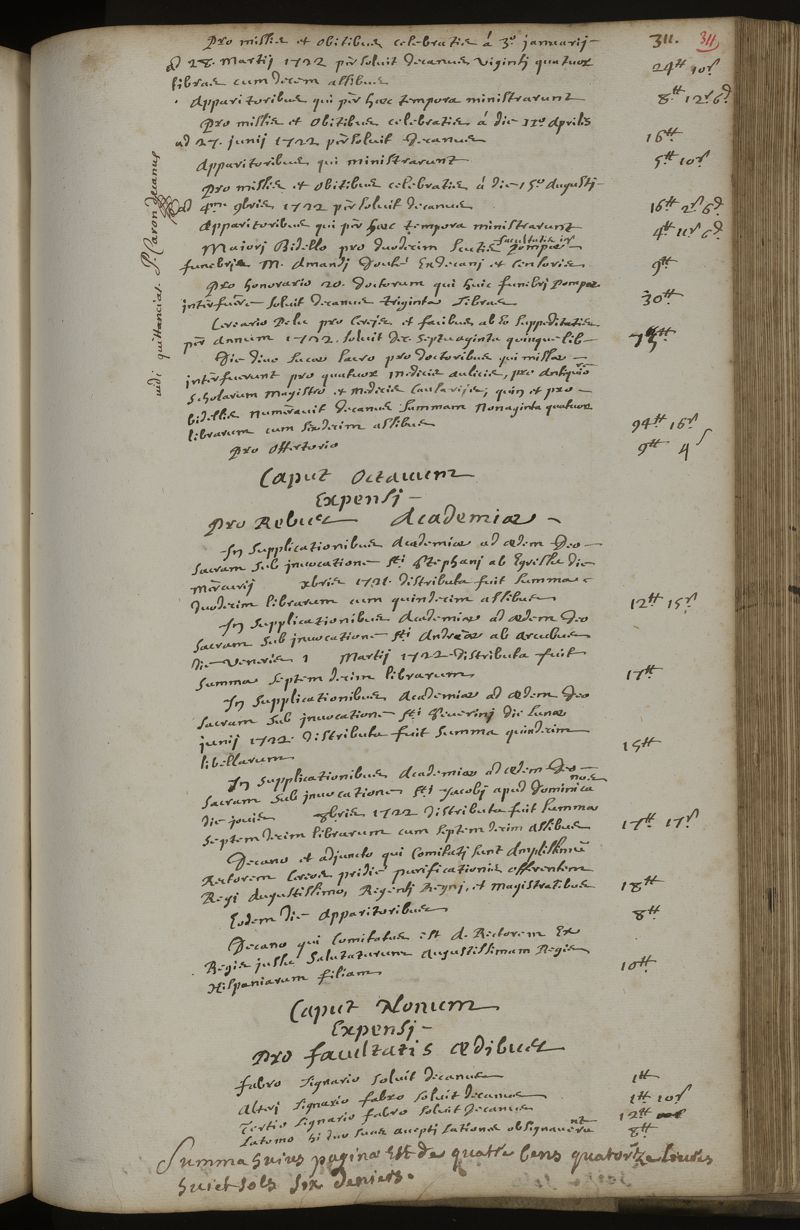 Pro missis et obitibus celebratis á 3º januarij 311. 311
ad 28. Martij 1722 persoluit decanus viginti quatuor 24tt 10s
libras cum decem assibus
Apparitoribus qui per hæc tempora ministrarunt 8tt 12s 6d
Pro missis et obitibus celebratis á die 11º Aprilis
ad 27. junij 1722 persoluit decanus 16tt
Apparitoribus qui ministrarunt 5tt 10s
Pro missis et obitibus celebratis á die 15º Augusti
ad 4am 9bris 1722 persoluit decanus 16tt 2s 6d
Apparitoribus qui per hæc tempora ministrarunt 4tt 11s 6d
Maiori Bidello pro duodecim scutis facultatis in pompa
funebris M. Amandj Douté Exdecanj et Censoris 9tt
Pro honorario 20. doctorum qui huic funebrj pompæ
interfuere soluit decanus triginta libras 30tt
Cereario Pelu pro Cereis et facibus ab eo suppeditatis
per annum 1722. soluit dec. septuaginta quinque lib 75tt
Die divo Lucæ sacro pro doctoribus qui missæ
interfuerunt pro quatuor medicis aulicis, pro Antiquiore
scholarum magistro et medicis Caularijs, quin et pro
bidellis numeravit decanus summam nonaginta quatuor
librarum cum sexdecim assibus 94tt 16s
Pro offertorio 9tt 4s
vidi quittancias. P. Caron decanus
Caput Octauum
Expensi
Pro Rebus Academiæ
In supplicationibus Academiæ ad ædem Deo
sacram sub invocatione Sti Stephanj ab Egressu die
mercurij xbris 1721. distributa fuit summa
duodecim librarum cum quindecim assibus 12tt 15s
In supplicationibus Academiæ ad ædem Deo
sacram sub jnvocatione Sti Andreæ ab arcubus
die Veneris 1 Martij 1722 distributa fuit
summa septem decim librarum 17tt
In supplicationibus Academiæ ad ædem Deo
sacram sub jnvocatione Sti Severinj die Lunæ
junij 1722. distributa fuit summa quindecim
libellarum 15tt
In supplicationibus Academiæ ad ædem Deo
sacram sub jnvocatione Sti Jacobj apud dominicanos
die jovis 8bris 1722 distributa fuit summa
septemdecim librarum cum septemdecim assibus 17tt 17s
Decano et adjuncto qui Comitati sunt Amplissimum
Rectorem Cereos pridie purificationis offerentem
Regi Augustissimo, Regentj Regnj, et magistratibus 18tt
Eodem die Apparitoribus 8tt
Decano qui Comitatus est D. Rectorem Ex
Regis jussu salutaturum Augustissimam Regis
Hispaniarum filiam 10tt
Caput Nonum
Expensi
Pro facultatis ædibus
Fabro Lignario soluit decanus 1tt
Alteri Lignario fabro soluit decanus 1tt 10s
Tertio Lignario fabro soluit decanus 12tt
Latomo 8tt
Summa huius paginæ Est de quatre Cens quatorze livres
huict sols six deniers.